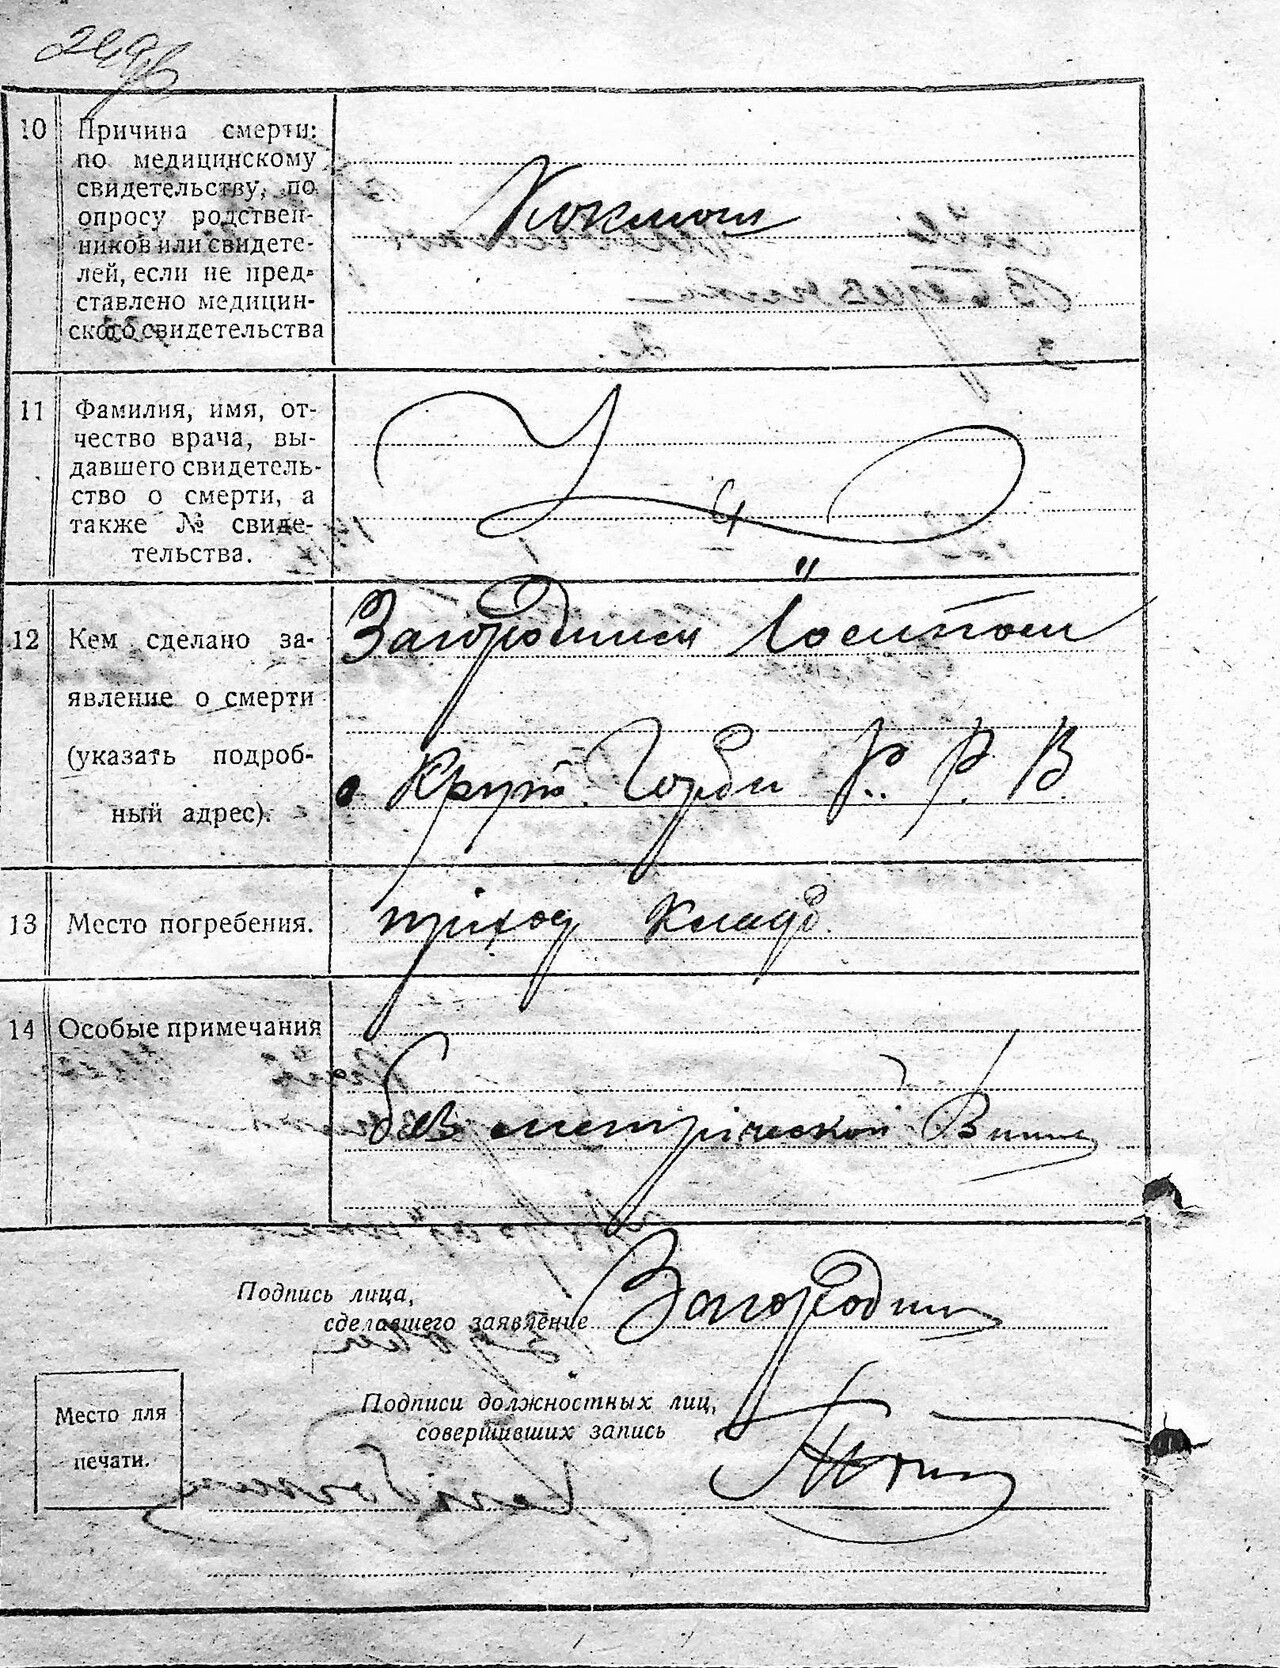 10 Причина смерти:
по медицинскому
свидетельству, по
опросу родствен-
ников или свидете-
лей, если не пред-
ставлено медицин-
ского свидетельства
Коклюш
11 Фамилия, имя, от-
чество врача, вы-
давшего свидетель-
ство о смерти, а
также № свиде-
тельства.
12 Кем сделано за-
явление о смерти
(указать подроб-
ный адрес).
Загородним
Горби Р. Р. В.
13 Место погребения.
приход кладб.
14 Особые примечания
без метрической
Подпись лица,
сделавшего заявление
Загородний
Подписи должностных лиц,
совершивших запись
Место для
печати.